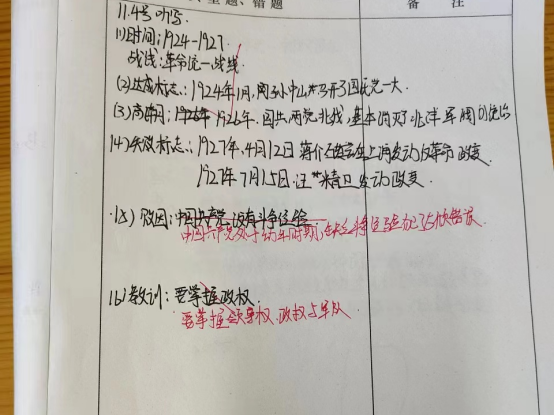 重题、错题
备 注
11.4号 听写
(1)时间:1924-1927.
战线:革命统一战线
(2)达成标志:1924年1月,孙中山 召开了国民党一大.
(3)高潮:1926年 1926年.国共两党北伐,基本消灭了北洋军阀的统治
(4)失败标志:1927年.4月12日 蒋介石 在上海发动反革命政变.
1927年7月15日,汪精卫发动政变.
(5)败因:中国共产党没有斗争经验
中国共产党处于幼年时期,缺乏斗争经验 犯了右倾错误
(6)教训:要掌握政权.
要掌握领导权、政权与军队